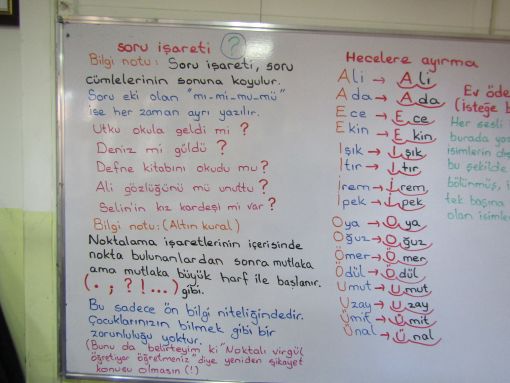 soru işareti ?
Bilgi notu: Soru işareti, soru
cümlelerinin sonuna koyulur.
Soru eki olan "mı-mi-mu-mü"
ise her zaman ayrı yazılır.
Utku okula geldi mi ?
Deniz mi güldü ?
Defne kitabını okudu mu?
Ali gözlüğünü mü unuttu?
Selin'in kız kardeşi mi var?
Bilgi notu: (Altın kural)
Noktalama işaretlerinin içerisinde
nokta bulunanlardan sonra mutlaka
ama mutlaka büyük harf ile başlanır.
(. ; ? ! ...) gibi.
Bu sadece ön bilgi niteliğindedir.
Çocuklarınızın bilmek gibi bir
zorunluluğu yoktur.
(Bunu da belirteyim ki "Noktalı virgül
öğretiyor öğretmeniz" diye yeniden şikayet
konusu olmasın (!)
Hecelere ayırma
Ali → A li
Ada → A da
Ece → E ce
Ekin → E kin
Işık → I şık
Itır → I tır
İrem → İ rem
İpek → İ pek
Oya → O ya
Oğuz → O ğuz
Ömer → Ö mer
Ödül → Ö dül
Umut → U mut
Uzay → U zay
Ümit → Ü mit
Ünal → Ü nal
Ev öde
(İsteğe b
Her sesli
burada yaz
isimlerin dış
bu şekilde
bölünmüş, i
tek başına
olan isimle